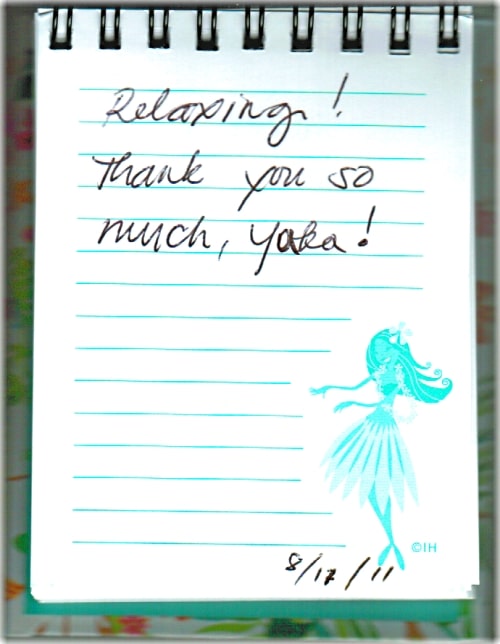 Relaxing!
Thank you so
much, Yoka!
©IH
8/17/11